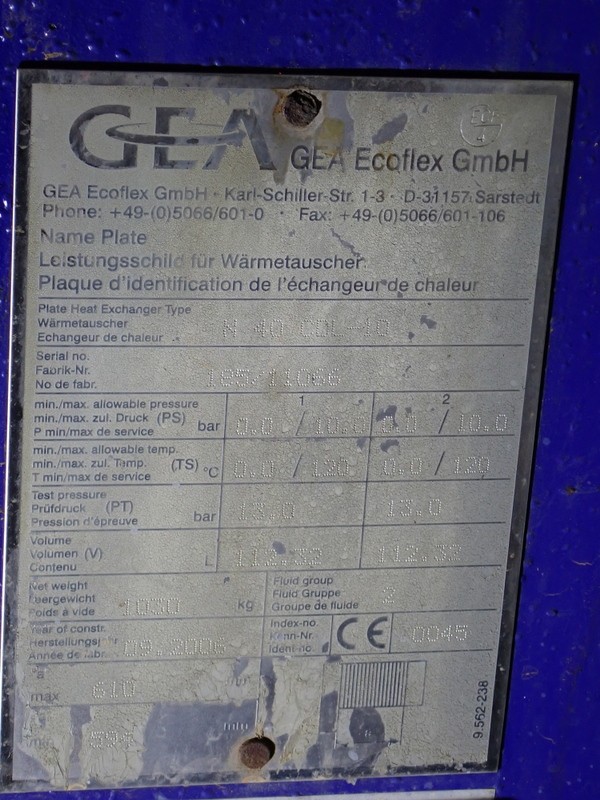 GEA
GEA Ecoflex GmbH
GEA Ecoflex GmbH · Karl-Schiller-Str. 1-3 · D-31157 Sarstedt
Phone: +49-(0)5066/601-0 · Fax: +49-(0)5066/601-106
Name Plate
Leistungsschild für Wärmetauscher
Plaque d'identification de l'échangeur de chaleur
Plate Heat Exchanger Type
Wärmetauscher
Echangeur de chaleur
N 40 CDL-10
Serial no.
Fabrik-Nr.
No de fabr.
185/11066
1 2
min./max. allowable pressure
min./max. zul. Druck (PS) bar 0.0 / 10.0 0.0 / 10.0
P min/max de service
min./max. allowable temp.
min./max. zul. Temp. (TS) °C 0.0 / 120 0.0 / 120
T min/max de service
Test pressure
Prüfdruck (PT) bar 13.0 13.0
Pression d'épreuve
Volume
Volumen (V) L 112.32 112.32
Contenu
Net weight
Leergewicht 1030 kg
Poids à vide
Fluid group
Fluid Gruppe 2
Groupe de fluide
Year of constr.
Herstellungsjahr 09.2006
Année de fabr.
Index-no.
Kenn-Nr. CE 0045
Ident-no.
max 610
min
9.562-238